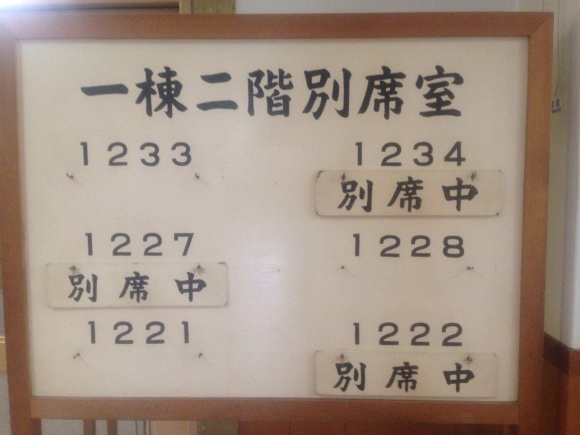 一棟二階別席室
1233 1234
別席中
1227 1228
別席中
1221 1222
別席中